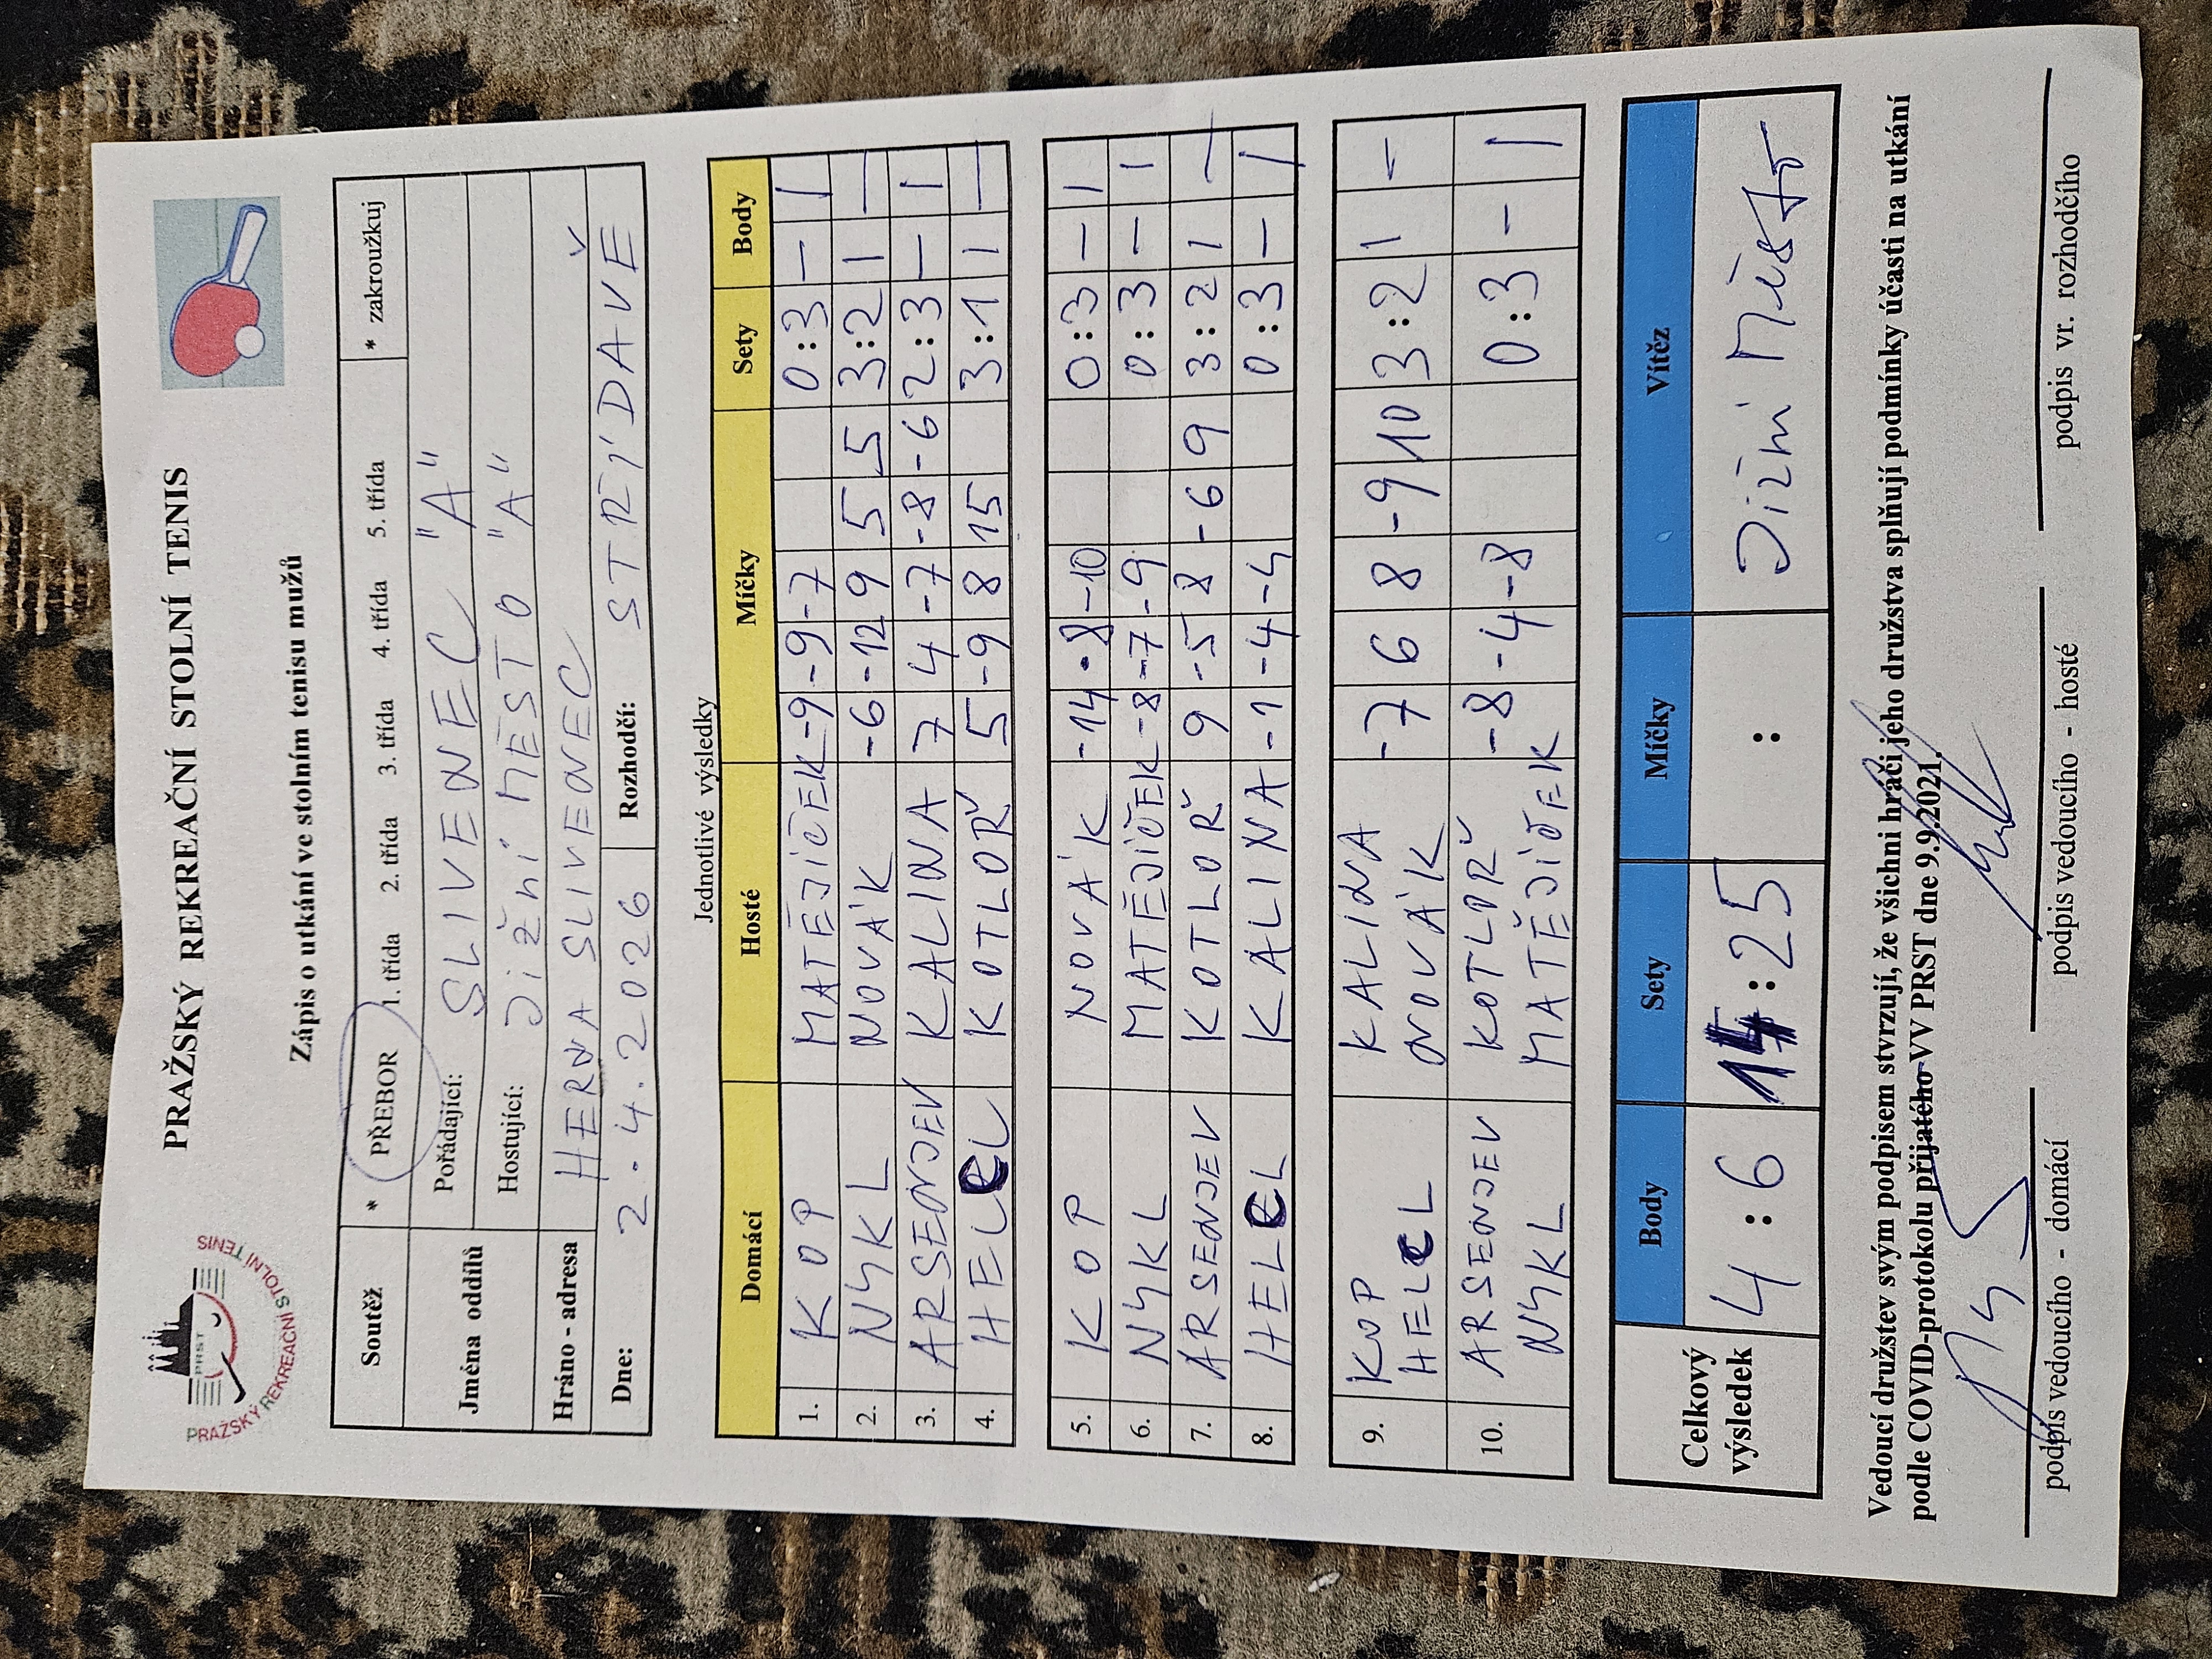 PRAŽSKÝ REKREAČNÍ STOLNÍ TENIS
PRST
PRAŽSKÝ REKREAČNÍ STOLNÍ TENIS
Zápis o utkání ve stolním tenisu mužů
Soutěž * PŘEBOR 1. třída 2. třída 3. třída 4. třída 5. třída * zakroužkuj
Jména oddílů Pořádající: SLIVENEC "A"
Hostující: JIŽNÍ MĚSTO "A"
Hráno - adresa HERNA SLIVENEC
Dne: 2.4.2026 Rozhodčí: STŘÍDAVĚ
Jednotlivé výsledky
Domácí Hosté Míčky Sety Body
1. KOP MATĚJÍČEK -9 -9 -7 0:3 – 1
2. NYKL NOVÁK -6 -12 9 5 5 3:2 1 –
3. ARSENJEV KALINA 7 4 -7 -8 -6 2:3 – 1
4. HELCL KOTLOŘ 5 -9 8 15 3:1 1 –
5. KOP NOVÁK -14 -8 -10 0:3 – 1
6. NYKL MATĚJÍČEK -8 -7 -9 0:3 – 1
7. ARSENJEV KOTLOŘ 9 -5 8 -6 9 3:2 1 –
8. HELCL KALINA -1 -4 -4 0:3 – 1
9. KOP KALINA -7 6 8 -9 10 3:2 1 –
HELCL NOVÁK
10. ARSENJEV KOTLOŘ -8 -4 -8 0:3 – 1
NYKL MATĚJÍČEK
Celkový výsledek Body Sety Míčky Vítěz
4:6 14:25 : Jižní Město
Vedoucí družstev svým podpisem stvrzují, že všichni hráči jeho družstva splňují podmínky účasti na utkání
podle COVID-protokolu přijatého VV PRST dne 9.9.2021.
podpis vedoucího - domácí podpis vedoucího - hosté podpis vr. rozhodčího